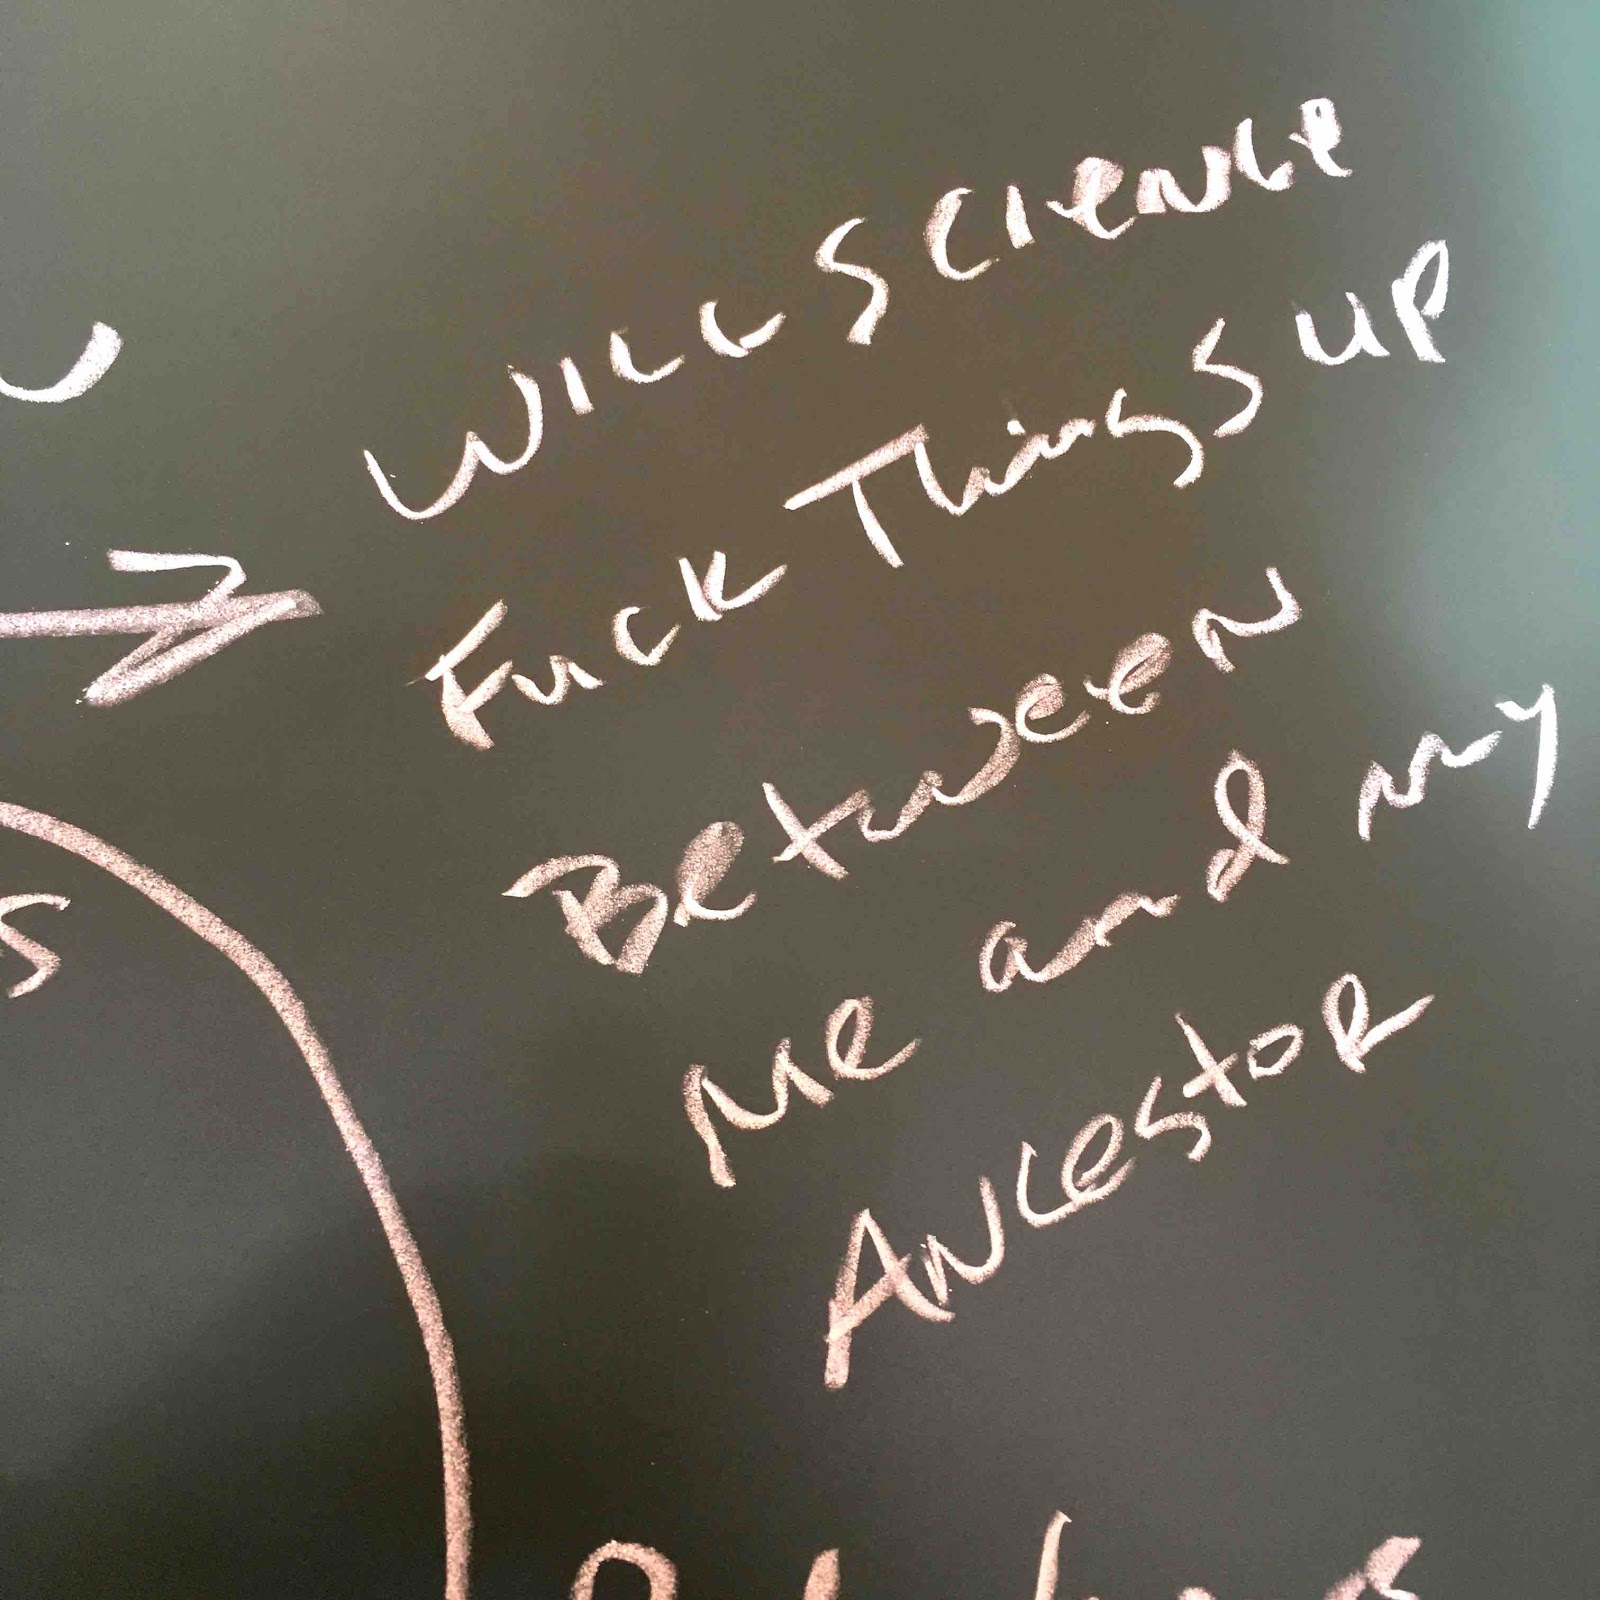 WILL SCIENCE
Fuck Things UP
Between
Me and my
Ancestor